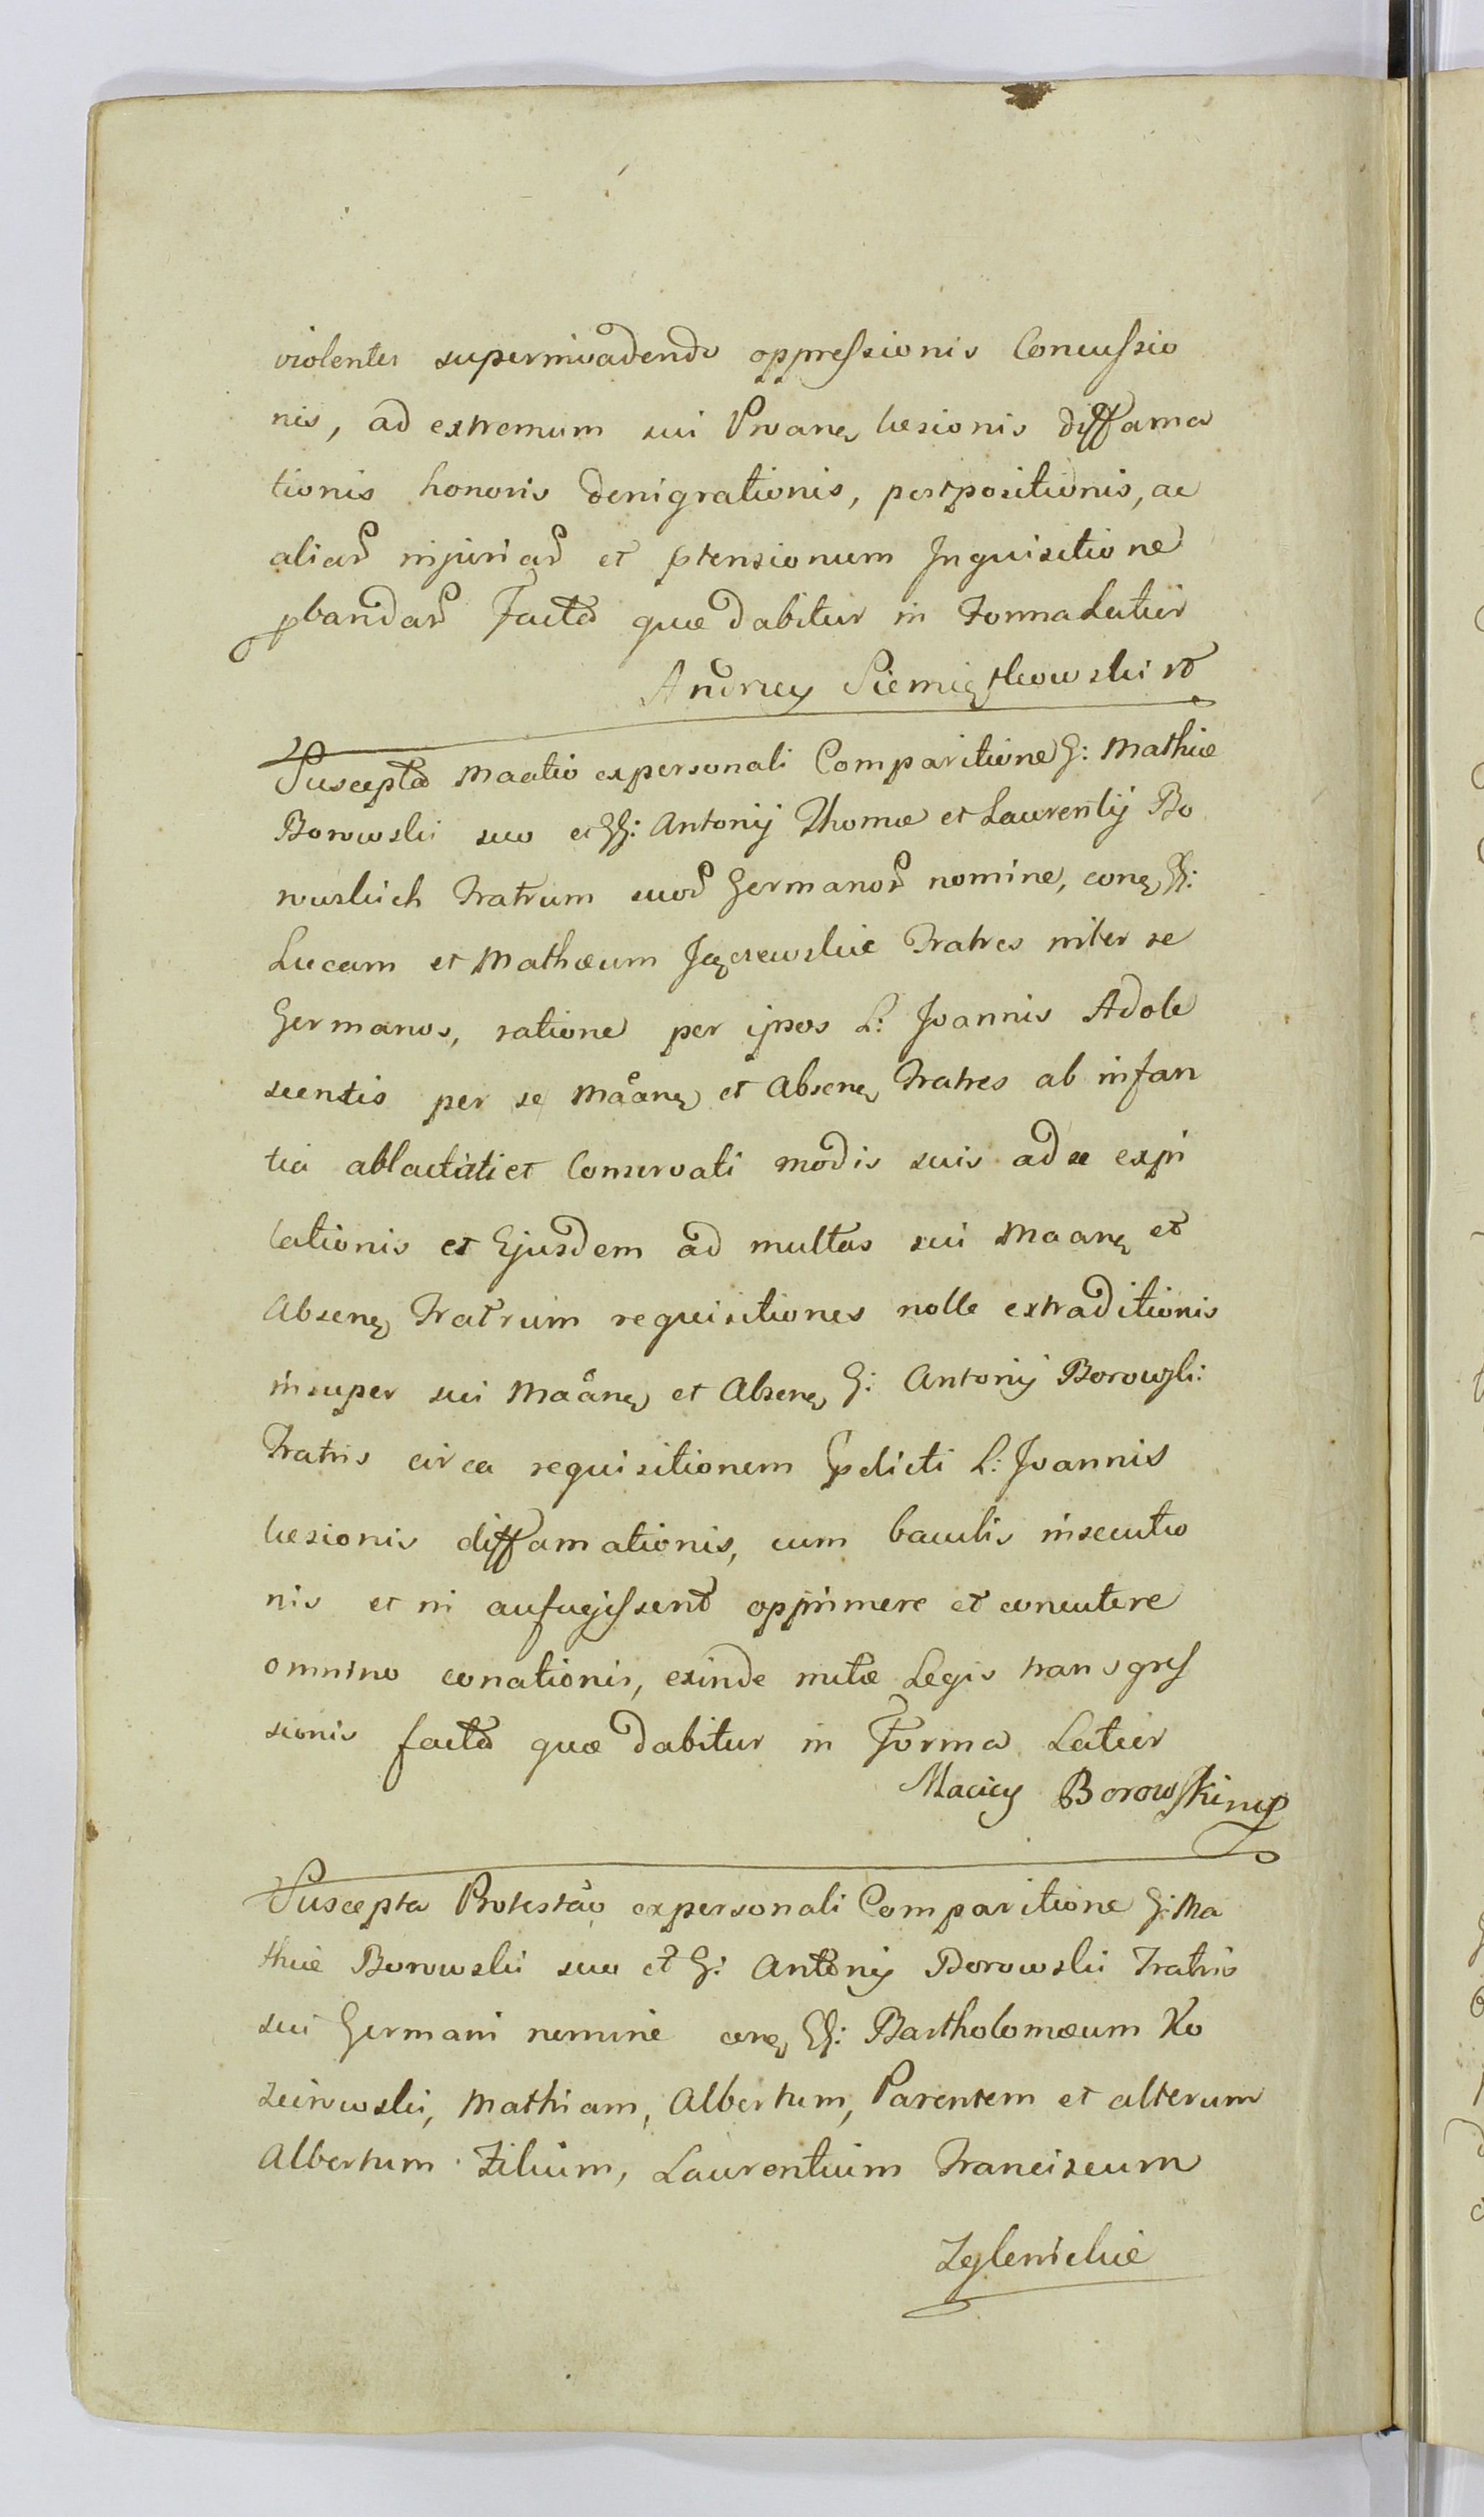 violenter superinvadendo oppressionis Concussio
nis, ad extremum sui Proanẽ læsionis diffama
tionis honoris denigrationis, postpositionis, ac
aliar injuriar et ptensionum Inquisitione
pbandar facta quæ dabitur in Forma Latiũr
Andrzey Siemiątkowski
Suscepta Maatio ex personali Comparitione G: Mathiæ
Borowski suo et GG: Antonij Thomæ et Laurentij Bo
rowskich Fratrum suor Germanor nomine, conẽ GG:
Lucam et Mathæum Jączewskie Fratres inter se
Germanos, ratione per ipsos L: Joannis Adole
scentis per se Maanẽ et Absenẽ Fratres ab infan
tia ablactati et Conservati modis suis ad se expi
lationis et Ejusdem ad multas sui Maanẽ et
Absenẽ Fratrum requisitiones nolle extraditionis
insuper sui Maanẽ et Absenẽ G: Antonij Borowski:
Fratris circa requisitionem pdicti L: Joannis
læsionis diffamationis, cum baculis insecutio
nis et ni aufugissent opprimere et concutere
omnino conationis, exinde mitæ Legis transgres
sionis facta quæ dabitur in Forma Latiũr
Maciey Borowski mp
Suscepta Protestão ex personali Comparitione G: Ma
thiæ Borowski suo et G: Antonij Borowski Fratris
sui Germani nomine conẽ GG: Bartholomæum Ko
Mathiam, Albertum, Parentem et alterum
Albertum Filium, Laurentium Franciscum
Zglenickie